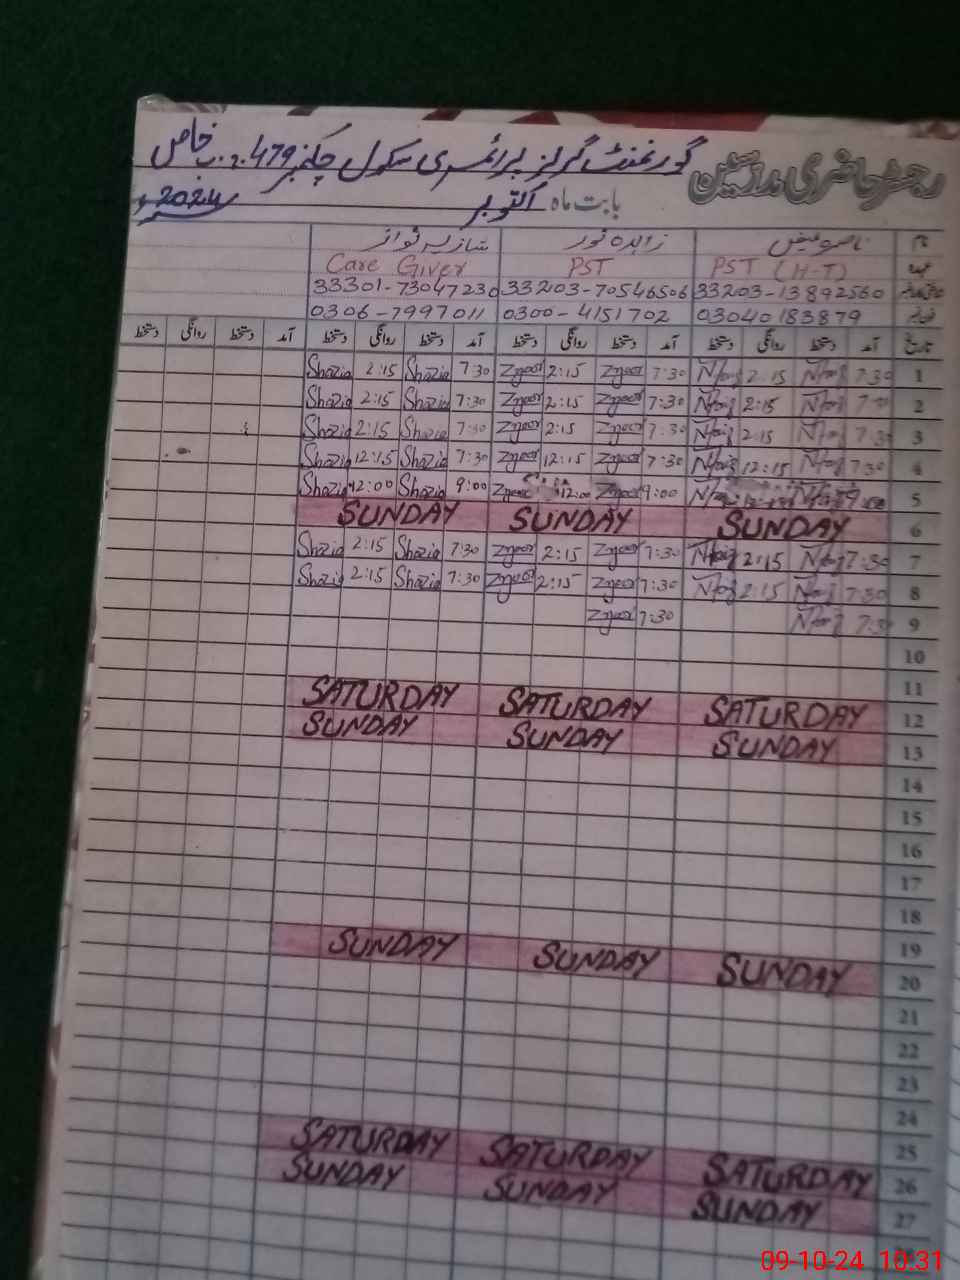 رجسٹر حاضری مدرسین گورنمنٹ گرلز پرائمری سکول چک نمبر 479 ج۔ب خاص
بابت ماہ اکتوبر 2024ء
نام ناصرہ فیض زاہدہ نور شازیہ نواز
عہدہ PST (H-T) PST Care Giver
33203-13892560 33203-70546506 33301-73047230
03040183879 0300-4151702 0306-7997011
تاریخ آمد دستخط روانگی دستخط آمد دستخط روانگی دستخط آمد دستخط روانگی دستخط آمد دستخط روانگی دستخط
1 7:30 Nfaiz 2:15 Nfaiz 7:30 Znoor 2:15 Znoor 7:30 Shazia 2:15 Shazia
2 7:30 Nfaiz 2:15 Nfaiz 7:30 Znoor 2:15 Znoor 7:30 Shazia 2:15 Shazia
3 7:30 Nfaiz 2:15 Nfaiz 7:30 Znoor 2:15 Znoor 7:30 Shazia 2:15 Shazia
4 7:30 Nfaiz 12:15 Nfaiz 7:30 Znoor 12:15 Znoor 7:30 Shazia 12:15 Shazia
5 Nfaiz 9:00 Znoor 12:00 Znoor 9:00 Shazia 12:00 Shazia
6 SUNDAY SUNDAY SUNDAY
7 7:30 Nfaiz 2:15 Nfaiz 7:30 Znoor 2:15 Znoor 7:30 Shazia 2:15 Shazia
8 7:30 Nfaiz 2:15 Nfaiz 7:30 Znoor 2:15 Znoor 7:30 Shazia 2:15 Shazia
9 7:30 Nfaiz 7:30 Znoor
10
11
12 SATURDAY SATURDAY SATURDAY
13 SUNDAY SUNDAY SUNDAY
14
15
16
17
18
19
20 SUNDAY SUNDAY SUNDAY
21
22
23
24
25
26 SATURDAY SATURDAY SATURDAY
27 SUNDAY SUNDAY SUNDAY
09-10-24 10:31